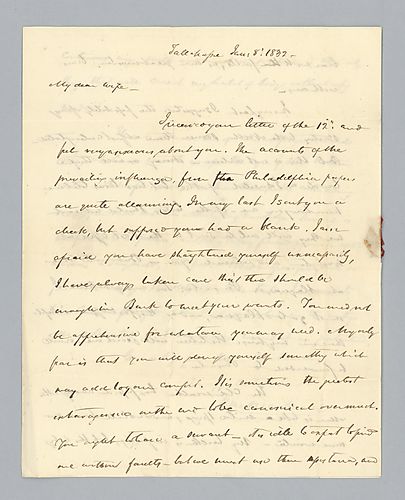 Tallahassee Jany 8th 1832.
My dear wife –
I received your letter of the 12th and
felt very anxious about you. The accounts of the
prevailing influenza, from the Philadelphia papers
are quite alarming. In my last I sent you a
check, but suppose you had a blank. I am
afraid you have straightened yourself unnecessarily,
I have always taken care that there should be
enough in Bank to meet your wants. You need not
be apprehensive for whatever you may need. My only
fear is that you will deny yourself something which
may add to your comfort. It is sometimes the greatest
extravagance in the world to be economical overmuch.
You ought to have a servant – it is idle to expect to find
one without faults – but we must use their assistance, and